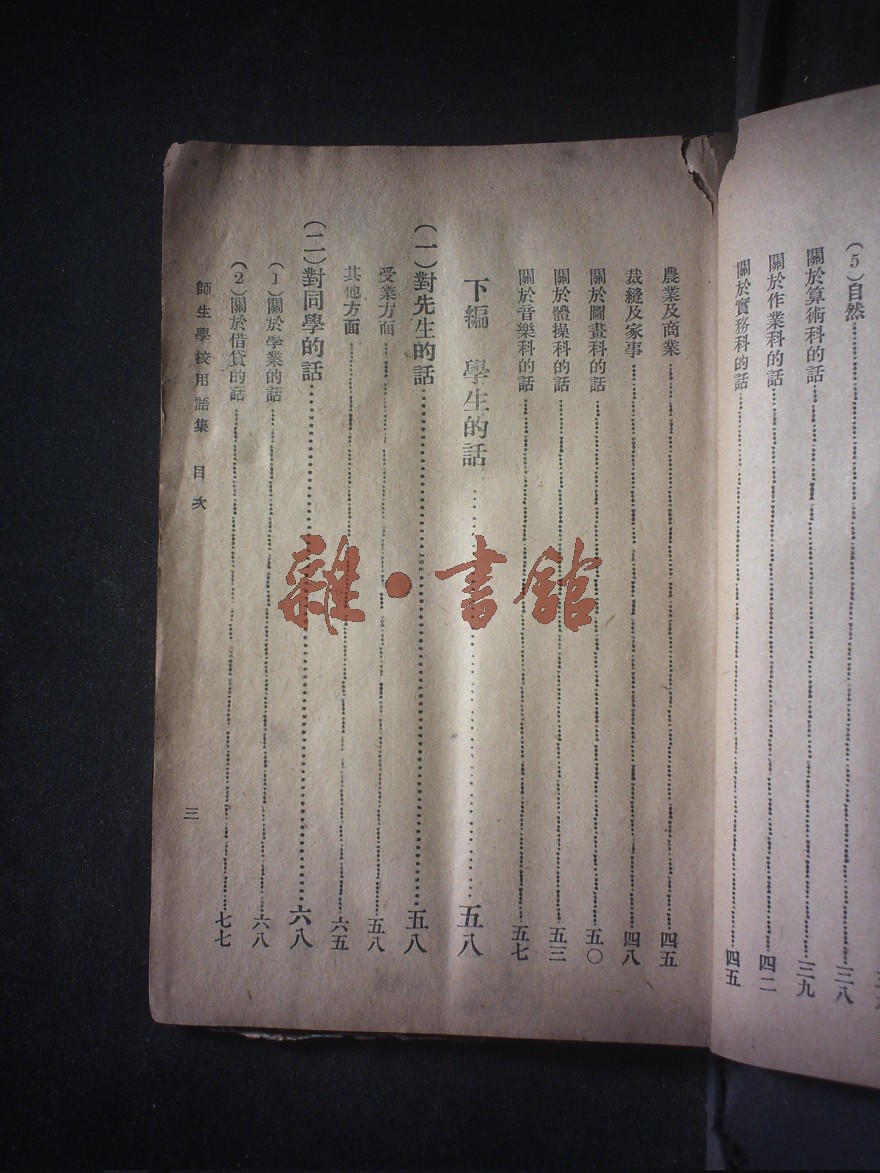 （5）自然 三八
關於算術科的話 三九
關於作業科的話 四二
關於實務科的話 四五
農業及商業 四五
裁縫及家事 四八
關於圖畫科的話 五〇
關於體操科的話 五三
關於音樂科的話 五七
下編　學生的話 五八
（一）對先生的話 五八
受業方面 五八
其他方面 六五
（二）對同學的話 六八
（1）關於学業的話 六八
（2）關於借貸的話 七七
師生學校用語集　目次
三
雜·書館